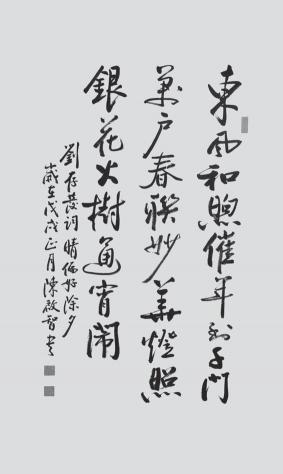 東風和煦催年到千門
萬戶春聯妙華燈照
銀花火樹通宵鬧
劉存發詞晴偏好除夕
歲在戊戌正月陳啟智書